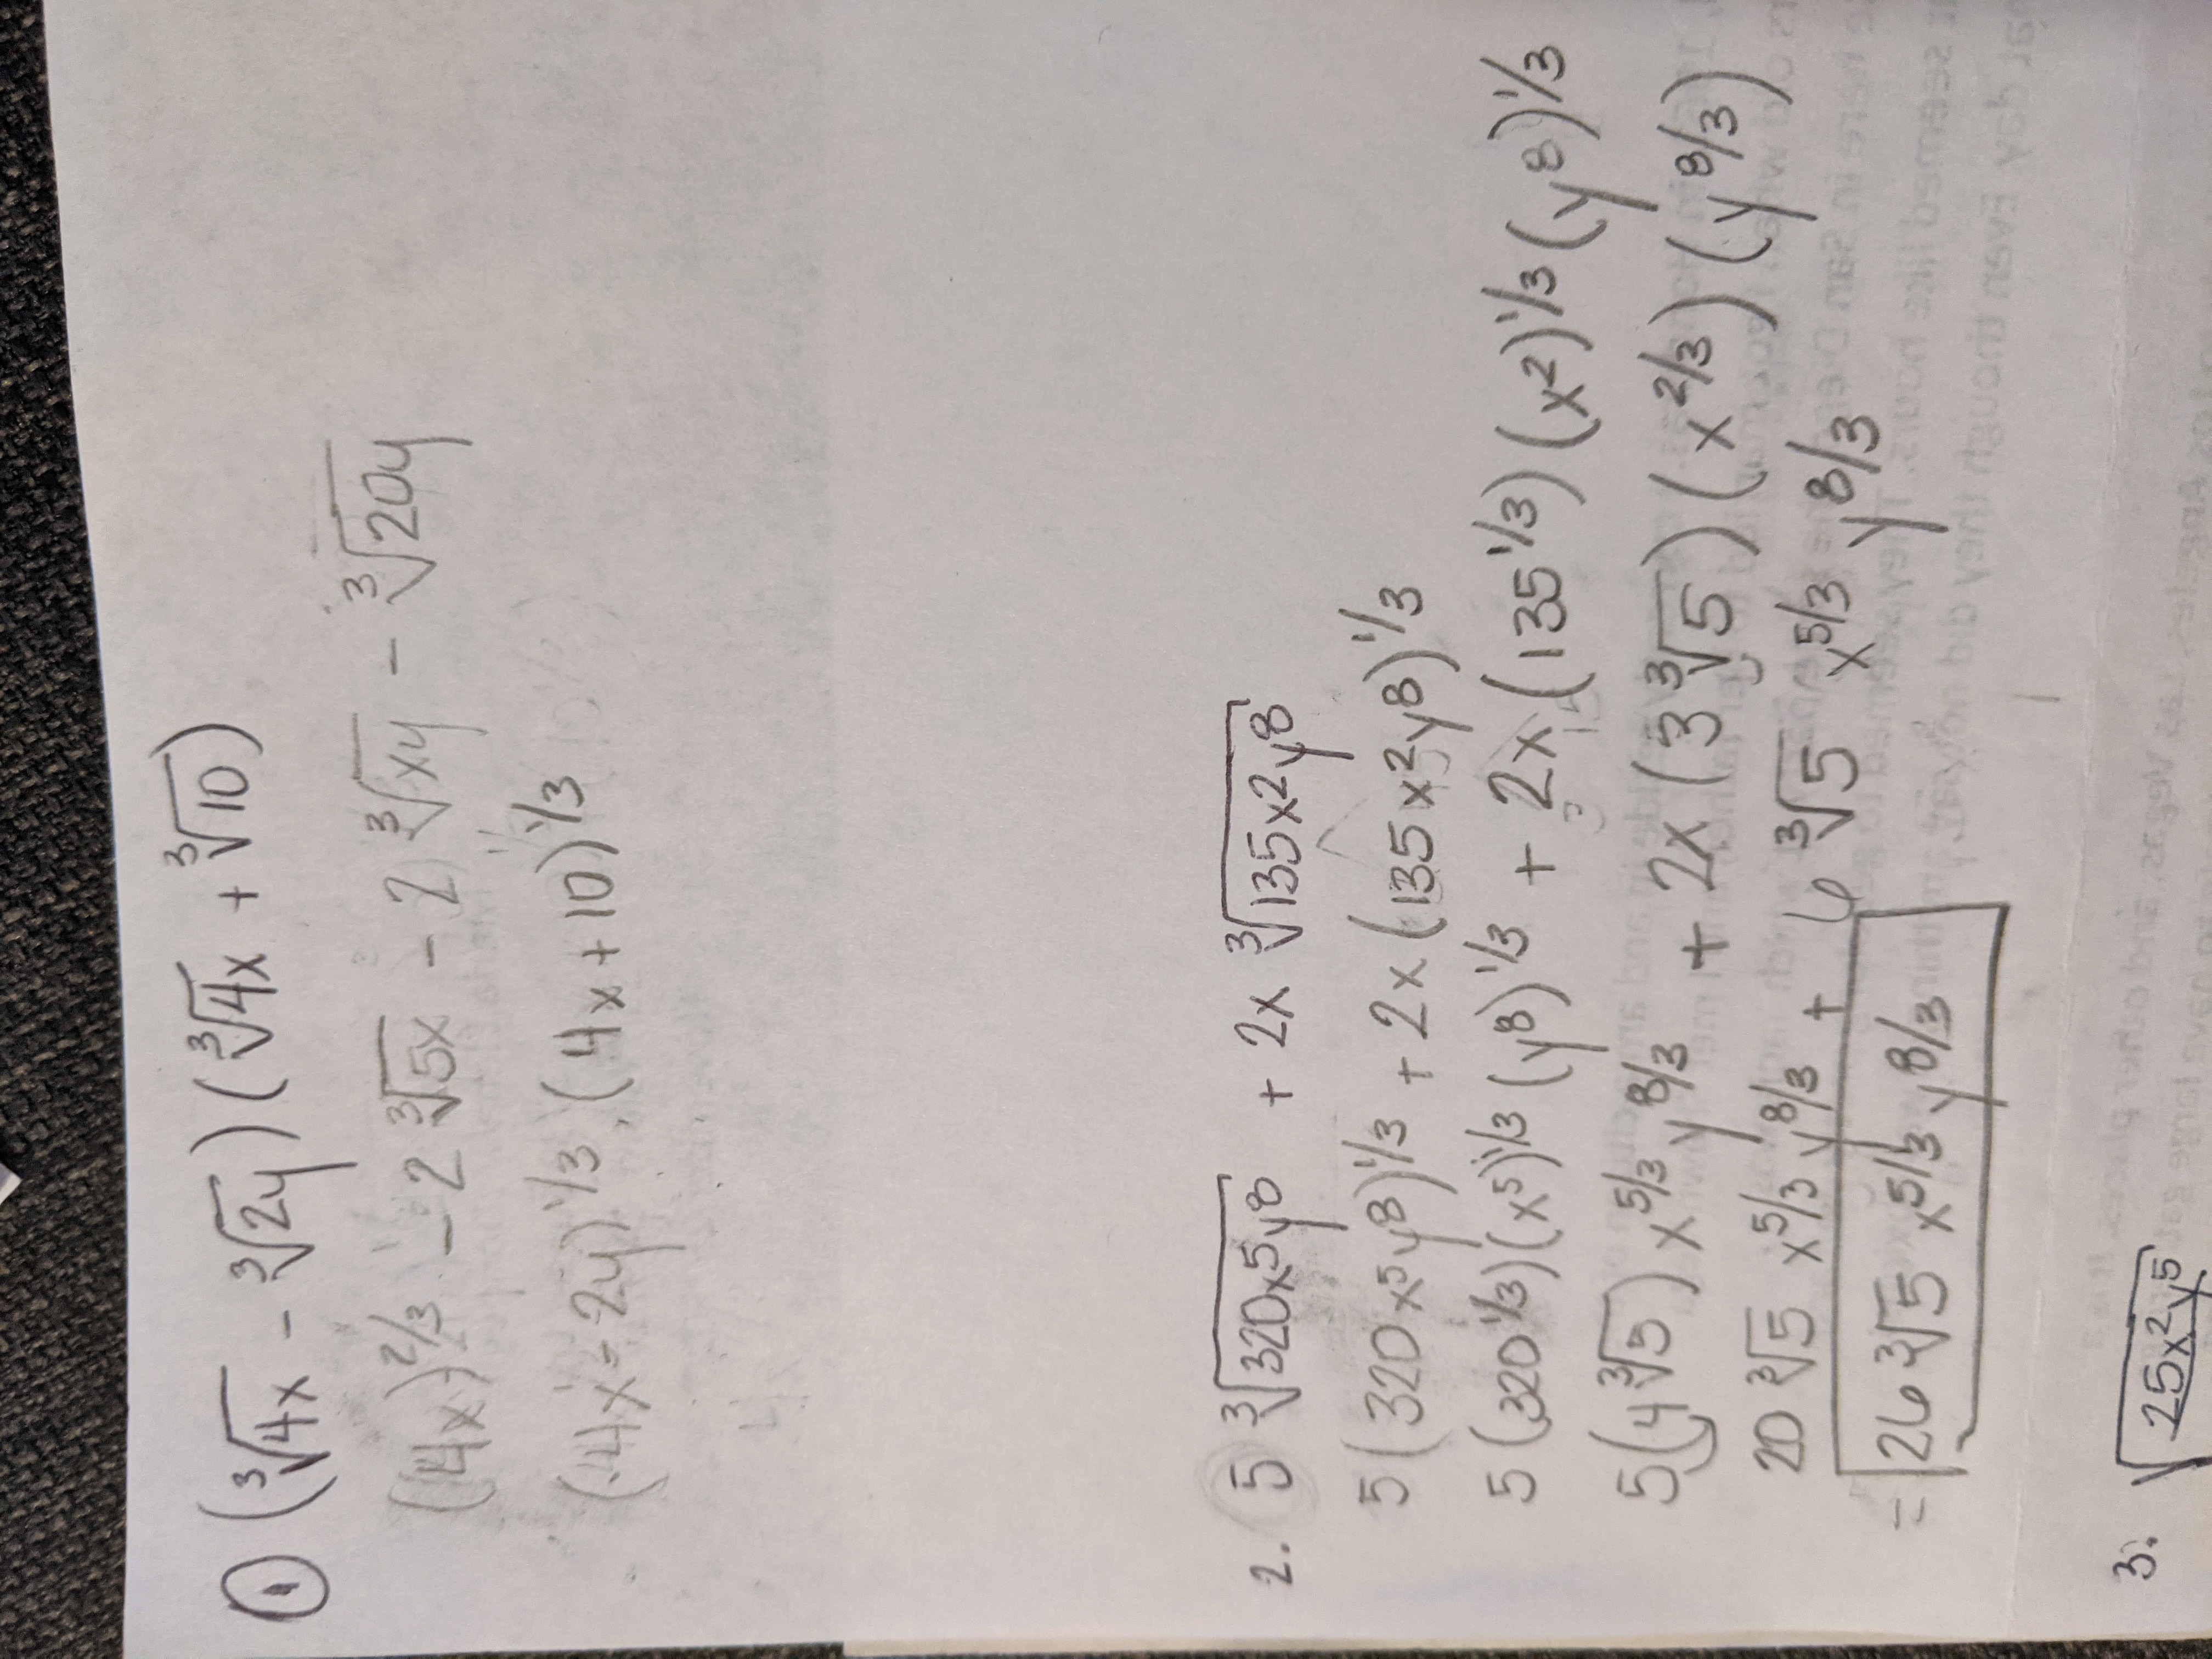 ① (∛4x - ∛2y) (∛4x + ∛10)
(4x)^2/3 - 2 ∛5x - 2 ∛xy - ∛20y
(4x - 2y)^1/3 (4x + 10)^1/3
2. 5 ∛320x⁵y⁸ + 2x ∛135x²y⁸
5 (320x⁵y⁸)^1/3 + 2x (135x²y⁸)^1/3
5 (320^1/3)(x⁵)^1/3 (y⁸)^1/3 + 2x (135^1/3) (x²)^1/3 (y⁸)^1/3
5(4∛5) x^5/3 y^8/3 + 2x (3∛5) (x^2/3) (y^8/3)
20 ∛5 x^5/3 y^8/3 + 6 ∛5 x^5/3 y^8/3
= 26 ∛5 x^5/3 y^8/3
3. √25x²y⁵